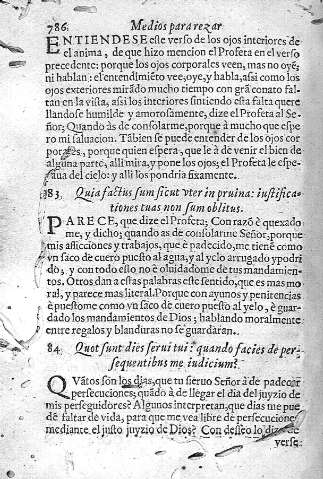 786. Medios para rezar
ENTIENDESE este verso de los ojos interiores de
el anima, de que hizo mencion el Profeta en el verso
precedente: porque los ojos corporales veen, mas no oyẽ,
ni hablan: el entendimiẽto vee, oye, y habla, assi como los
ojos exteriores mirãdo mucho tiempo con grã conato fal-
tan en la vista, assi los interiores sintiendo esta falta quere
llandose humilde y amorosamente, dize el Profeta al Se-
ñor; Quando às de consolarme, porque à mucho que espe
ro mi saluacion. Tãbien se puede entender de los ojos cor
porales, porque quien espera, que le à de venir el bien de
alguna parte, alli mira, y pone los ojos; el Profeta le espe-
raua del cielo: y alli los pondria fixamente.
83 Quia factus sum sicut vter in pruina: iustifica-
tiones tuas non sum oblitus.
PARECE, que dize el Profeta; Con razõ è quexado
me, y dicho; quando as de consolarme Señor, porque
mis aflicciones y trabajos, que è padecido, me tienẽ como
vn saco de cuero puesto al agua, y al yelo arrugado y podri
do; y con todo esso no è oluidadome de tus mandamien-
tos. Otros dan a estas palabras este sentido, que es mas mo
ral, y parece mas literal. Porque con ayunos y penitencias
è puestome como vn saco de cuero puesto al yelo, è guar-
dado los mandamientos de Dios; hablando moralmente
entre regalos y blanduras no se guardaran.
84 Quot sunt dies serui tui: quando facies de per-
sequentibus me iudicium?
QVãtos son los dias, que tu sieruo Señor à de padecer
persecuciones; quãdo à de llegar el dia del juyzio de
mis perseguidores? Algunos interpretan, que dias me pue
dẽ faltar de vida, para que me vea libre de persecuciones
mediante el justo juyzio de Dios? Con desseo lo dize
verse